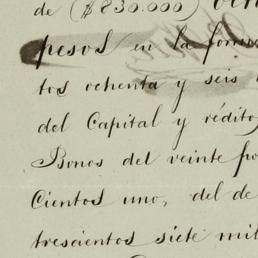 de ($830.000)
pesos en la form
tos ochenta y seis
del Capital y rédito
Bonos del veinte po
Cientos uno, del de
trescientos siete mil